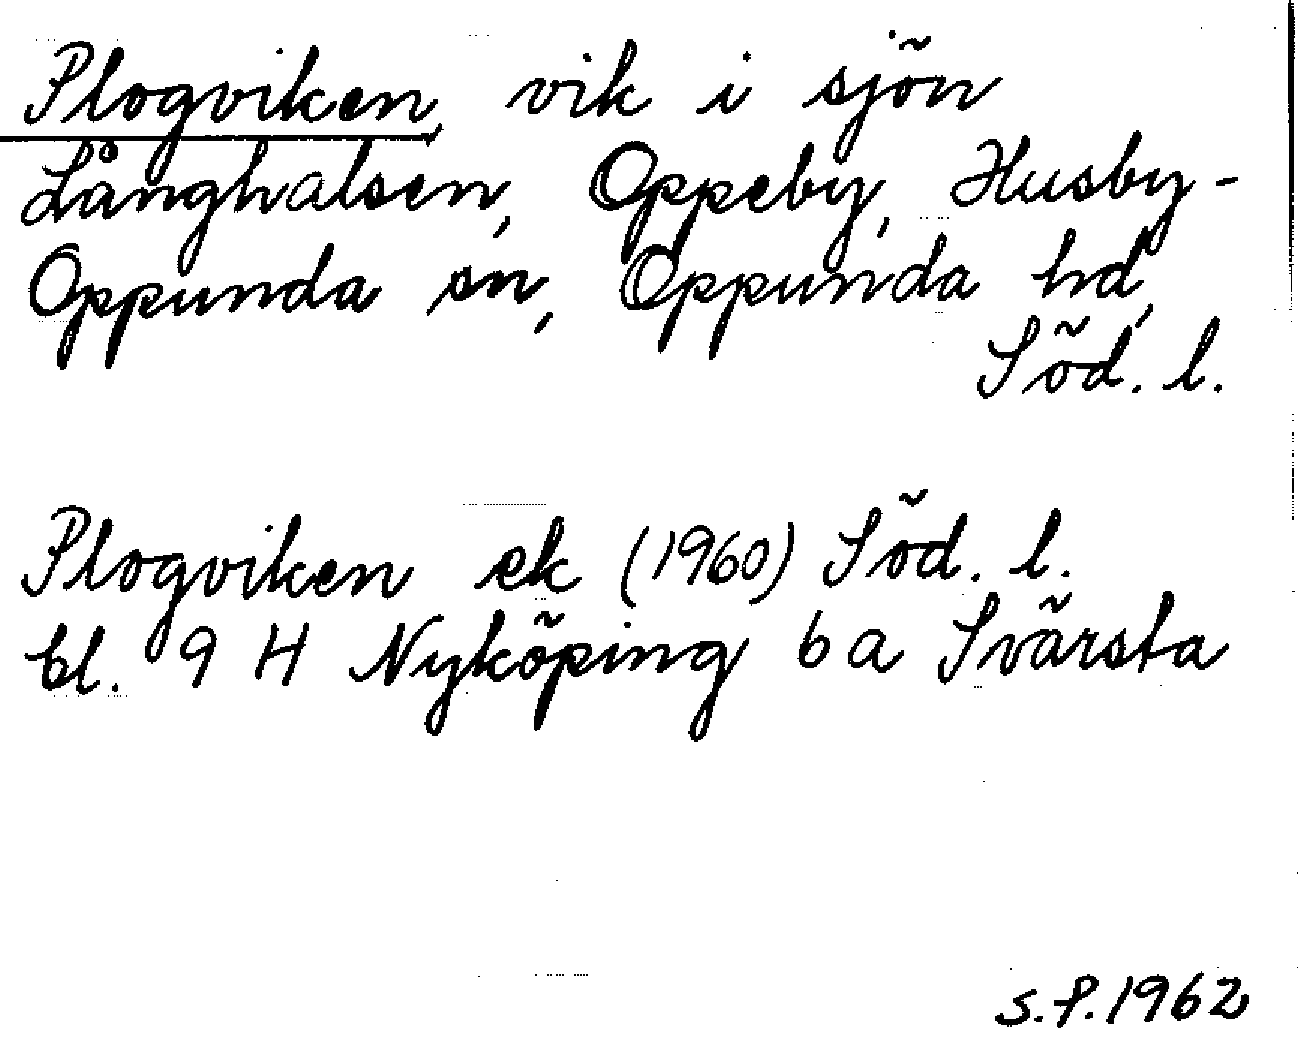 Plogviken, vik i sjön
Långhalsen, Oppeby, Husby-
Oppunda sn, Oppunda hd,
Söd. l.
Plogviken ek (1960) Söd. l.
bl. 9 H Nyköping 6 a Svärsta
S.P. 1962